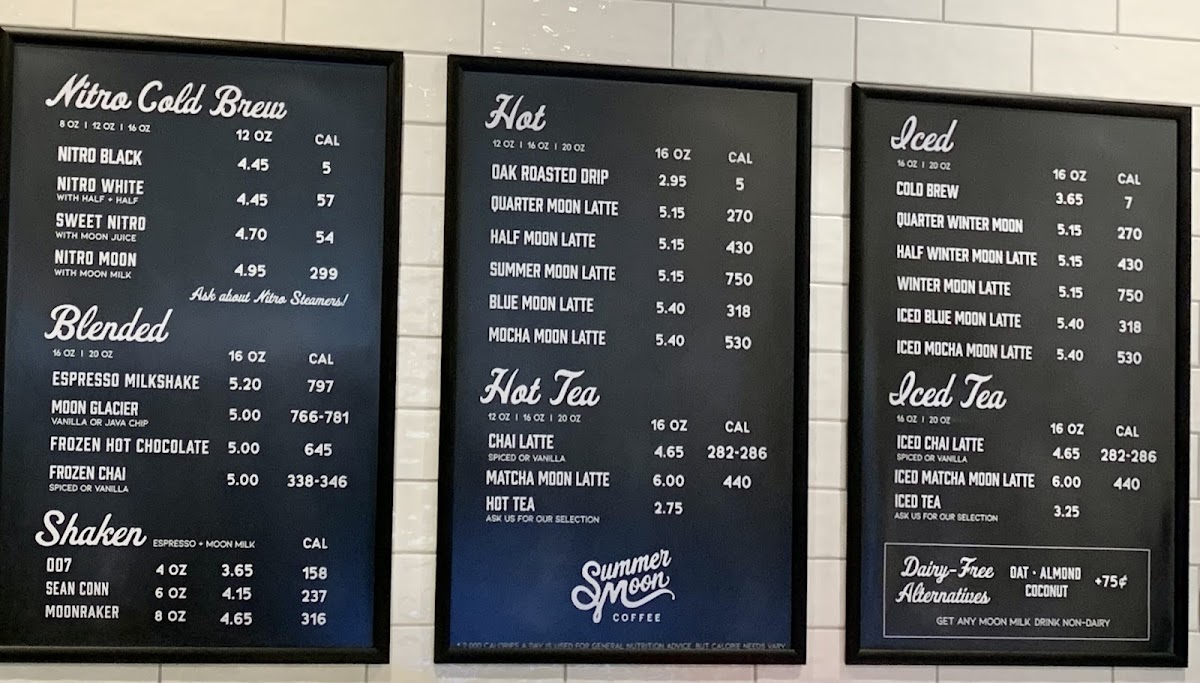 Nitro Cold Brew
8 OZ | 12 OZ | 16 OZ 12 OZ CAL
NITRO BLACK 4.45 5
NITRO WHITE 4.45 57
WITH HALF + HALF
SWEET NITRO 4.70 54
WITH MOON JUICE
NITRO MOON 4.95 299
WITH MOON MILK
Ask about Nitro Steamers!
Blended
16 OZ | 20 OZ 16 OZ CAL
ESPRESSO MILKSHAKE 5.20 797
MOON GLACIER 5.00 766-781
VANILLA OR JAVA CHIP
FROZEN HOT CHOCOLATE 5.00 645
FROZEN CHAI 5.00 338-346
SPICED OR VANILLA
Shaken ESPRESSO + MOON MILK CAL
007 4 OZ 3.65 158
SEAN CONN 6 OZ 4.15 237
MOONRAKER 8 OZ 4.65 316
Hot
12 OZ | 16 OZ | 20 OZ 16 OZ CAL
OAK ROASTED DRIP 2.95 5
QUARTER MOON LATTE 5.15 270
HALF MOON LATTE 5.15 430
SUMMER MOON LATTE 5.15 750
BLUE MOON LATTE 5.40 318
MOCHA MOON LATTE 5.40 530
Hot Tea
12 OZ | 16 OZ | 20 OZ 16 OZ CAL
CHAI LATTE 4.65 282-286
SPICED OR VANILLA
MATCHA MOON LATTE 6.00 440
HOT TEA 2.75
ASK US FOR OUR SELECTION
Summer
Moon
COFFEE
* 2,000 CALORIES A DAY IS USED FOR GENERAL NUTRITION ADVICE, BUT CALORIE NEEDS VARY
Iced
16 OZ | 20 OZ 16 OZ CAL
COLD BREW 3.65 7
QUARTER WINTER MOON 5.15 270
HALF WINTER MOON LATTE 5.15 430
WINTER MOON LATTE 5.15 750
ICED BLUE MOON LATTE 5.40 318
ICED MOCHA MOON LATTE 5.40 530
Iced Tea
16 OZ | 20 OZ 16 OZ CAL
ICED CHAI LATTE 4.65 282-286
SPICED OR VANILLA
ICED MATCHA MOON LATTE 6.00 440
ICED TEA 3.25
ASK US FOR OUR SELECTION
Dairy-Free OAT · ALMOND +75¢
Alternatives COCONUT
GET ANY MOON MILK DRINK NON-DAIRY